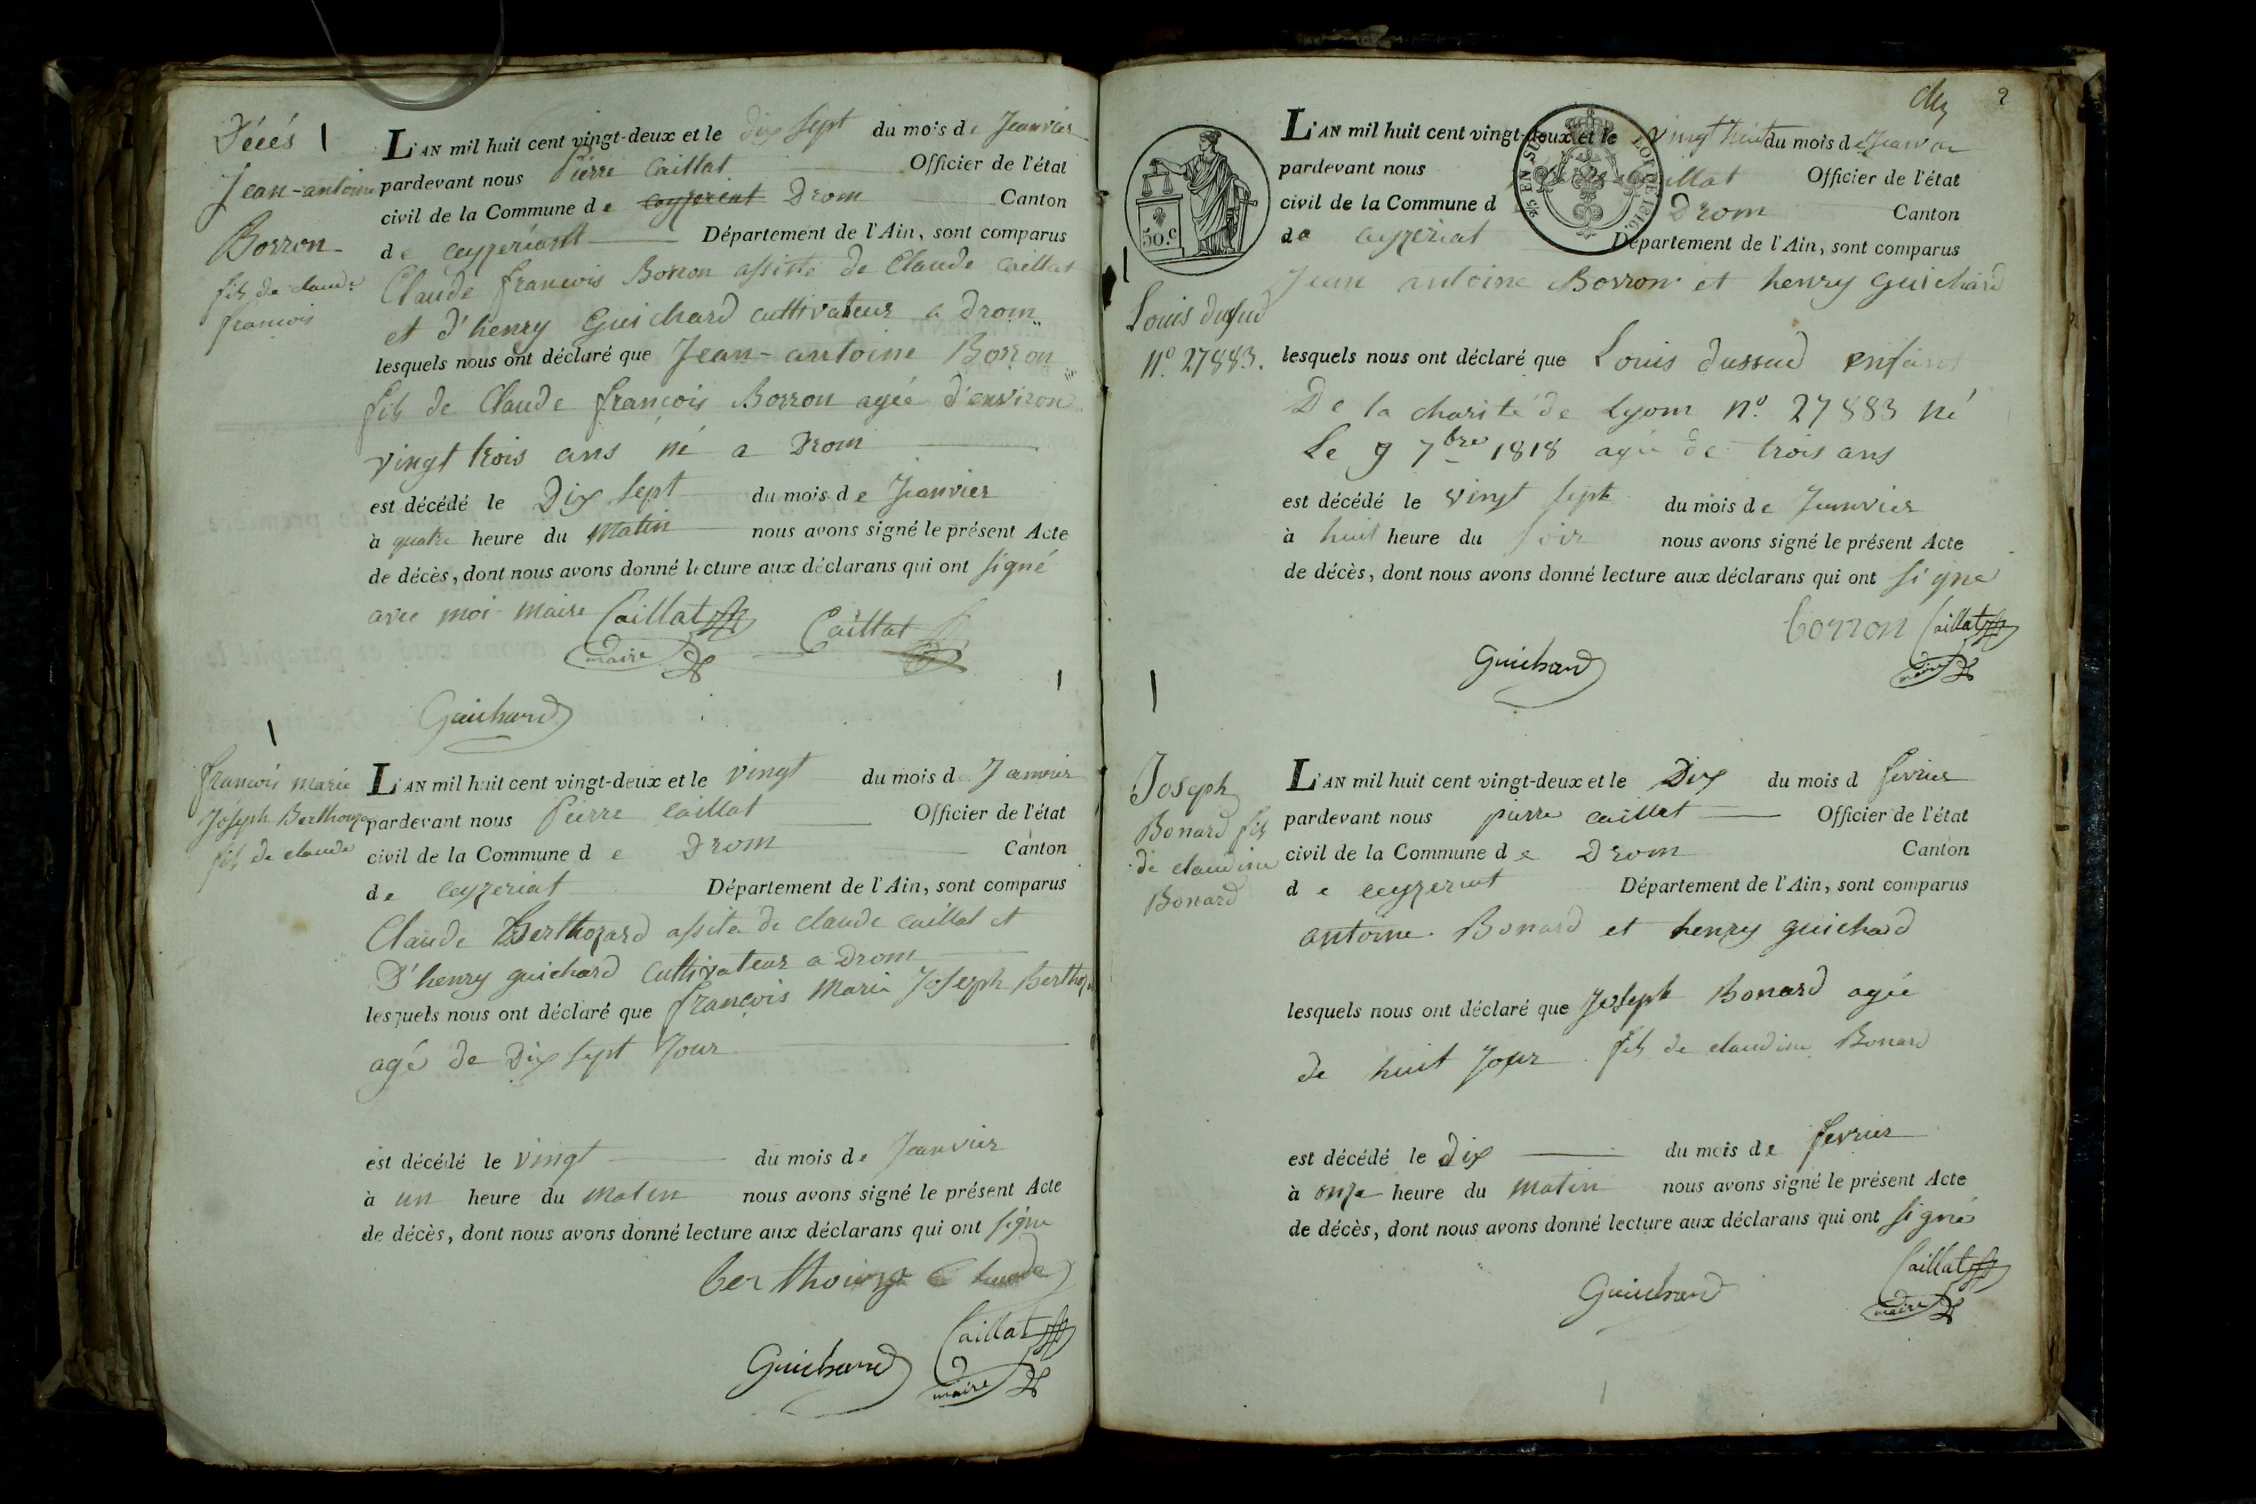 Décés
Jean-antoine
Borron
fils de claude
francois
L'AN mil huit cent vingt-deux et le dix sept du mois de Jeanvier
pardevant nous Pierre Caillat Officier de l'état
civil de la Commune de ceyzeriat Drom Canton
de ceyzeriat Département de l'Ain, sont comparus
Claude francois Borron assisté de Claude caillat
et d'henry Guichard cultivateur a Drom
lesquels nous ont déclaré que Jean-antoine Borron
fils de Claude francois Borron agée d'environ
vingt trois ans né a Drom
est décédé le Dix sept du mois de Jeanvier
à quatre heure du Matin nous avons signé le présent Acte
de décès, dont nous avons donné lecture aux déclarans qui ont signé
avec moi maire Caillat Caillat
maire
Guichard
francois marie
Joseph
fils de claude
L'AN mil huit cent vingt-deux et le vingt du mois d Janvier
pardevant nous Pierre Caillat Officier de l'état
civil de la Commune de Drom Canton
de ceyzeriat Département de l'Ain, sont comparus
Claude Berthozard assite de claude caillat et
D'henry guichard Cultivateur a Drom
lesquels nous ont déclaré que françois Marie Joseph
agé de Dix sept Jour
est décédé le vingt du mois de Jeanvier
à un heure du matin nous avons signé le présent Acte
de décès, dont nous avons donné lecture aux déclarans qui ont signe
Caillat
Guichard maire
2
50.c
EN SUS LOI DE 1816.
L'AN mil huit cent vingt-deux et le vingt huit du mois de
pardevant nous Caillat Officier de l'état
civil de la Commune d Drom Canton
de ceyzeriat Département de l'Ain, sont comparus
Jean antoine Borron et henry guichard
Louis dussud
n.º 27883.
lesquels nous ont déclaré que Louis dussud enfant
De la charité de Lyom nº. 27883 né
Le 9 7bre 1818 agé de trois ans
est décédé le vingt sept du mois de Jeanvier
à huit heure du soir nous avons signé le présent Acte
de décès, dont nous avons donné lecture aux déclarans qui ont signé
borron Caillat
Guichard maire
Joseph
Bonard fils
de claudine
Bonard
L'AN mil huit cent vingt-deux et le Dix du mois d fevrier
pardevant nous pierre caillat Officier de l'état
civil de la Commune de Drom Canton
de ceyzeriat Département de l'Ain, sont comparus
antoine Bonard et henry guichard
lesquels nous ont déclaré que Joseph Bonard agée
de huit Jour fils de claudine Bonard
est décédé le dix du mois de fevrier
à onze heure du matin nous avons signé le présent Acte
de décès, dont nous avons donné lecture aux déclarans qui ont signé
Caillat
Guichard maire